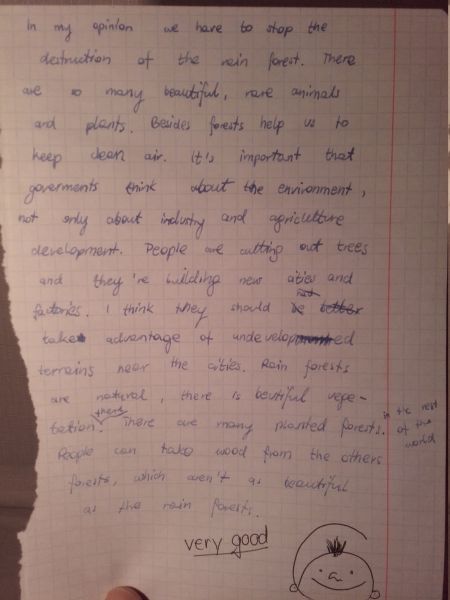 In my opinion we have to stop the
destruction of the rain forest. There
are so many beautiful, rare animals
and plants. Besides forests help us to
keep clean air. It's important that
goverments think about the environment,
not only about industry and agriculture
development. People are cutting out trees
and they're building new cities and
factories. I think they should not
take advantage of undeveloped
terrains near the cities. Rain forests
are natural, there is beutiful vege-
tation. There are many planted forests. in the rest of the world
People can take wood from the others
forests, which aren't as beautiful
as the rain forests.
very good